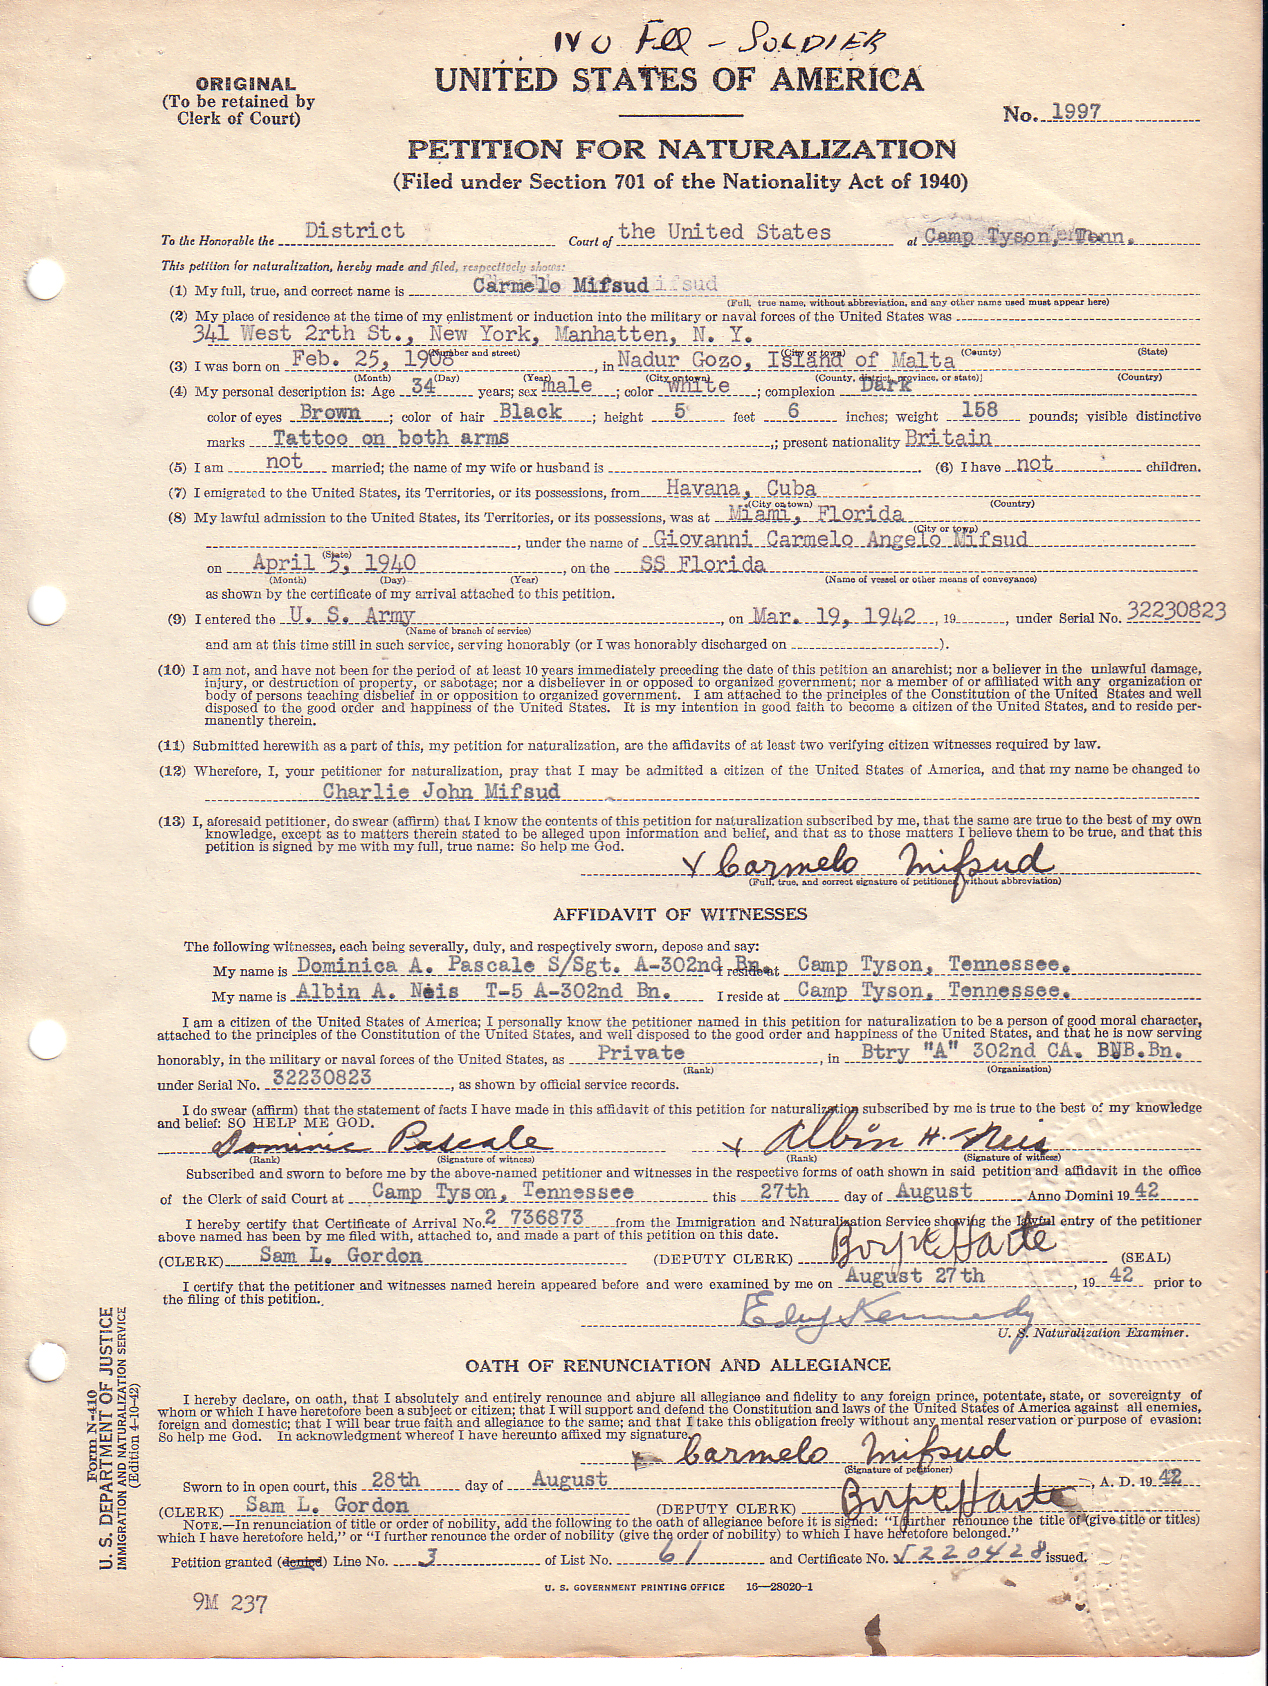 No Fee - SOLDIER
ORIGINAL
(To be retained by
Clerk of Court)
UNITED STATES OF AMERICA
No. 1997
PETITION FOR NATURALIZATION
(Filed under Section 701 of the Nationality Act of 1940)
To the Honorable the District Court of the United States at Camp Tyson, Tenn.
This petition for naturalization, hereby made and filed, respectively shows:
(1) My full, true, and correct name is Carmelo Mifsud
(Full, true name, without abbreviation, and any other name used must appear here)
(2) My place of residence at the time of my enlistment or induction into the military or naval forces of the United States was
341 West 2rth St., New York, Manhatten, N. Y.
(Number and street) (City or town) (County) (State)
(3) I was born on Feb. 25, 1908, in Nadur Gozo, Island of Malta
(Month) (Day) (Year) (City or town) (County, district, province, or state) (Country)
(4) My personal description is: Age 34 years; sex male; color white; complexion Dark
color of eyes Brown; color of hair Black; height 5 feet 6 inches; weight 158 pounds; visible distinctive
marks Tattoo on both arms; present nationality Britain
(5) I am not married; the name of my wife or husband is . (6) I have not children.
(7) I emigrated to the United States, its Territories, or its possessions, from Havana, Cuba
(City or town) (Country)
(8) My lawful admission to the United States, its Territories, or its possessions, was at Miami, Florida
(City or town)
, under the name of Giovanni Carmelo Angelo Mifsud
(State)
on April 5, 1940, on the SS Florida
(Month) (Day) (Year) (Name of vessel or other means of conveyance)
as shown by the certificate of my arrival attached to this petition.
(9) I entered the U. S. Army, on Mar. 19, 1942, 19, under Serial No. 32230823
(Name of branch of service)
and am at this time still in such service, serving honorably (or I was honorably discharged on ).
(10) I am not, and have not been for the period of at least 10 years immediately preceding the date of this petition an anarchist; nor a believer in the unlawful damage,
injury, or destruction of property, or sabotage; nor a disbeliever in or opposed to organized government; nor a member of or affiliated with any organization or
body of persons teaching disbelief in or opposition to organized government. I am attached to the principles of the Constitution of the United States and well
disposed to the good order and happiness of the United States. It is my intention in good faith to become a citizen of the United States, and to reside per-
manently therein.
(11) Submitted herewith as a part of this, my petition for naturalization, are the affidavits of at least two verifying citizen witnesses required by law.
(12) Wherefore, I, your petitioner for naturalization, pray that I may be admitted a citizen of the United States of America, and that my name be changed to
Charlie John Mifsud
(13) I, aforesaid petitioner, do swear (affirm) that I know the contents of this petition for naturalization subscribed by me, that the same are true to the best of my own
knowledge, except as to matters therein stated to be alleged upon information and belief, and that as to those matters I believe them to be true, and that this
petition is signed by me with my full, true name: So help me God.
x Carmelo Mifsud
(Full, true, and correct signature of petitioner, without abbreviation)
AFFIDAVIT OF WITNESSES
The following witnesses, each being severally, duly, and respectively sworn, depose and say:
My name is Dominica A. Pascale S/Sgt. A-302nd Bn. I reside at Camp Tyson, Tennessee.
My name is Albin A. Neis T-5 A-302nd Bn. I reside at Camp Tyson, Tennessee.
I am a citizen of the United States of America; I personally know the petitioner named in this petition for naturalization to be a person of good moral character,
attached to the principles of the Constitution of the United States, and well disposed to the good order and happiness of the United States, and that he is now serving
honorably, in the military or naval forces of the United States, as Private, in Btry "A" 302nd CA. BNB.Bn.
(Rank) (Organization)
under Serial No. 32230823, as shown by official service records.
I do swear (affirm) that the statement of facts I have made in this affidavit of this petition for naturalization subscribed by me is true to the best of my knowledge
and belief: SO HELP ME GOD.
Dominic Pascale x Albin H. Neis
(Rank) (Signature of witness) (Rank) (Signature of witness)
Subscribed and sworn to before me by the above-named petitioner and witnesses in the respective forms of oath shown in said petition and affidavit in the office
of the Clerk of said Court at Camp Tyson, Tennessee this 27th day of August Anno Domini 1942
I hereby certify that Certificate of Arrival No. 2 736873 from the Immigration and Naturalization Service showing the lawful entry of the petitioner
above named has been by me filed with, attached to, and made a part of this petition on this date.
(CLERK) Sam L. Gordon (DEPUTY CLERK) (SEAL)
I certify that the petitioner and witnesses named herein appeared before and were examined by me on August 27th, 1942 prior to
the filing of this petition.
Kennedy
U. S. Naturalization Examiner.
OATH OF RENUNCIATION AND ALLEGIANCE
I hereby declare, on oath, that I absolutely and entirely renounce and abjure all allegiance and fidelity to any foreign prince, potentate, state, or sovereignty of
whom or which I have heretofore been a subject or citizen; that I will support and defend the Constitution and laws of the United States of America against all enemies,
foreign and domestic; that I will bear true faith and allegiance to the same; and that I take this obligation freely without any mental reservation or purpose of evasion:
So help me God. In acknowledgment whereof I have hereunto affixed my signature.
Carmelo Mifsud
(Signature of petitioner)
Sworn to in open court, this 28th day of August, A. D. 1942
(CLERK) Sam L. Gordon (DEPUTY CLERK)
NOTE.—In renunciation of title or order of nobility, add the following to the oath of allegiance before it is signed: "I further renounce the title of (give title or titles)
which I have heretofore held," or "I further renounce the order of nobility (give the order of nobility) to which I have heretofore belonged."
Petition granted (denied) Line No. 3 of List No. 61 and Certificate No. 5220428 issued.
U. S. GOVERNMENT PRINTING OFFICE 16—28020-1
9M 237
Form N-410
U. S. DEPARTMENT OF JUSTICE
IMMIGRATION AND NATURALIZATION SERVICE
(Edition 4-10-42)